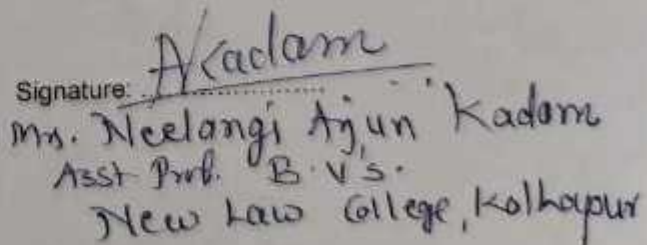 Signature: AKadam
Mrs. Neelangi Arjun Kadam
Asst Prof. B.V's.
New Law College, Kolhapur